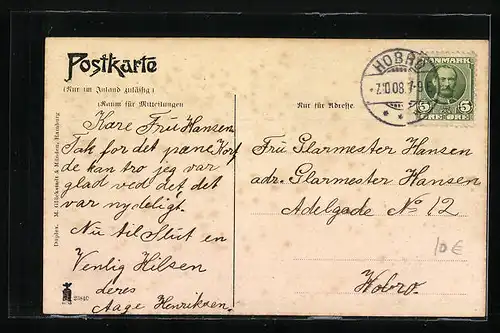 Postkarte
(Nur im Inland zulässig)
(Raum für Mitteilungen
Nur für Adresse.
HOBRO
7.10.08. 7-9
DANMARK
5 5
ØRE ØRE
Kare Fru Hansen
Tak for det pæne Kort
de kan tro jeg var
glad ved det det
var nydeligt.
Nu til Slut en
Venlig Hilsen
deres
Aage Henriksen.
Fru Glarmester Hansen
adr. Glarmester Hansen
Adelgade No 12
Hobro.
10 €
Dephot. M. Glückstadt & Münden, Hamburg